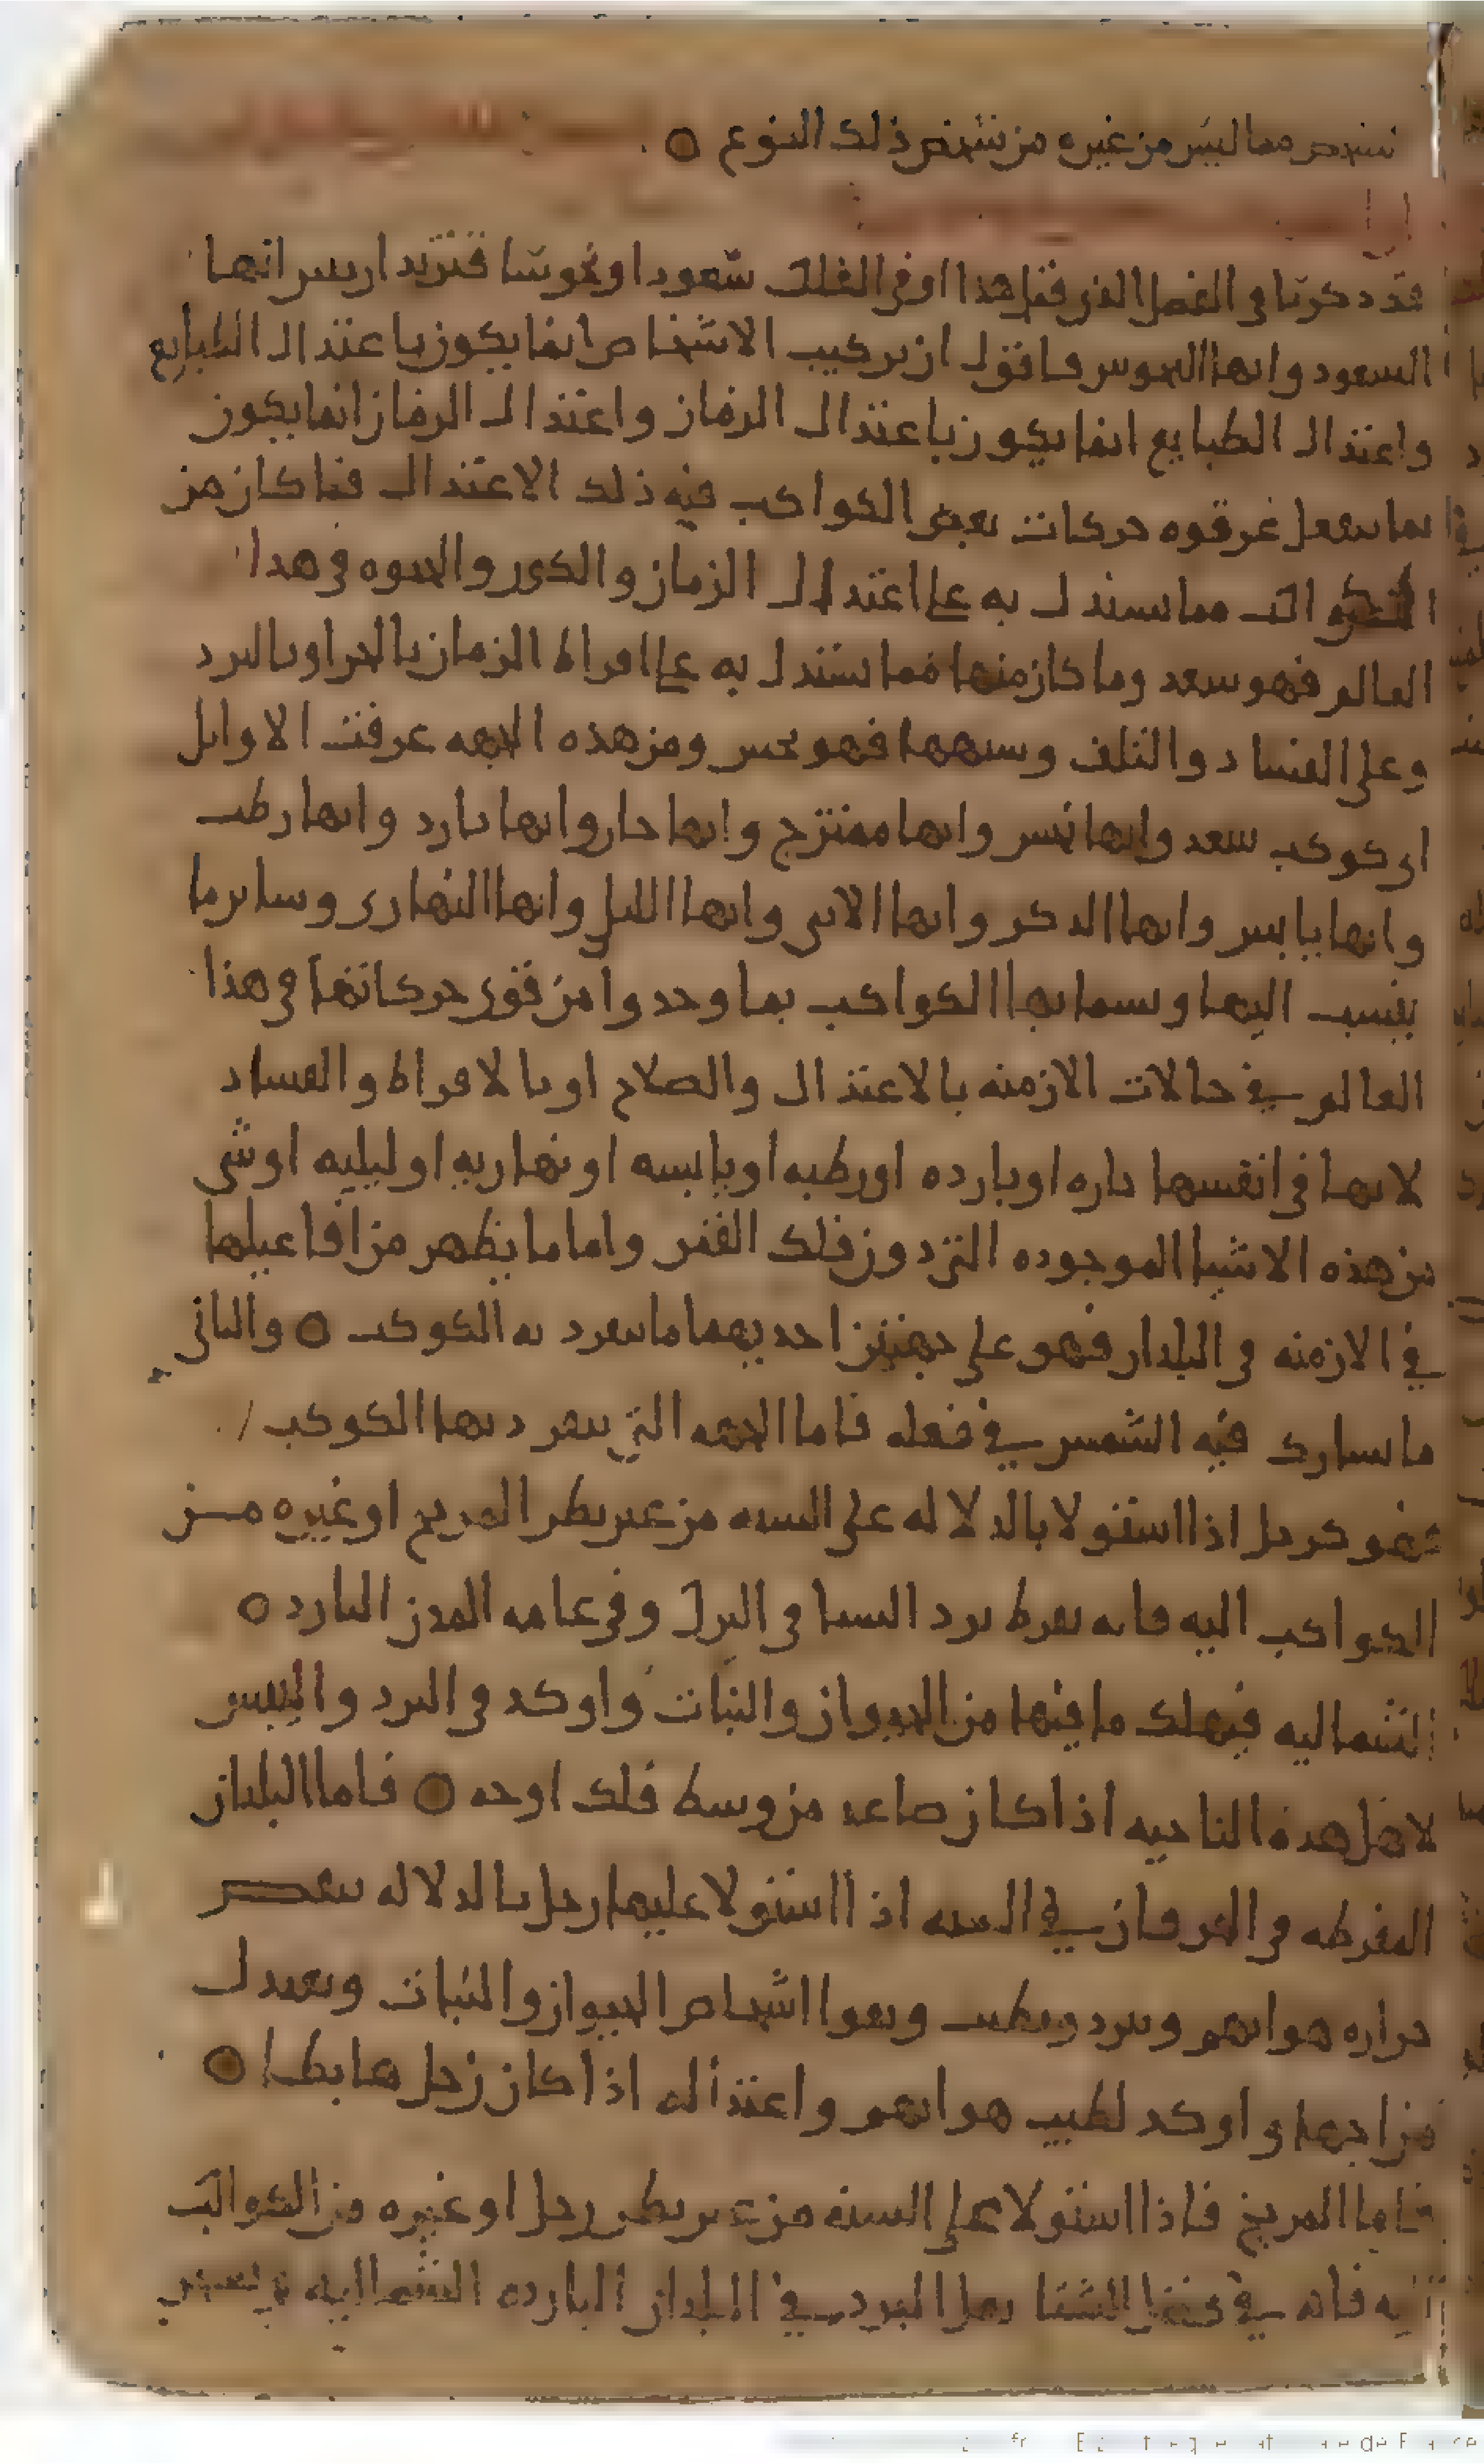 شخص مما ليس من غيره من شخص ذلك النوع ○
قد ذكرنا في الفصل الذي قبل هذا ان في الفلك سعودا ونحوسا فنريد ان نبين ايها
السعود وايها النحوس فاقول ان تركيب الاشخاص انما يكون باعتدال الطبايع
واعتدال الطبايع انما يكون باعتدال الزمان واعتدال الزمان انما يكون
بما ينفعل عن قوه حركات بعض الكواكب فيه ذلك الاعتدال فما كان من
الكواكب مما يستدل به على اعتدال الزمان والكون والنشوه في هذا
العالم فهو سعد وما كان منها مما يستدل به على افراط الزمان بالحر او بالبرد
وعلى الفساد والتلف وسبههما فهو نحس ومن هذه الجهه عرفت الاوايل
اي كوكب سعد وايها نحس وايها ممتزج وايها حار وايها بارد وايها رطب
وايها يابس وايها الذكر وايها الانثى وايها الليلي وايها النهاري وساير ما
ينسب اليها وسما بها الكواكب بما وجدوا من قوى حركاتها في هذا
العالم في حالات الازمنه بالاعتدال والصلاح او بالافراط والفساد
لا بها في انفسها حاره او بارده او رطبه او يابسه او نهاريه او ليليه او شي
من هذه الاشيا الموجوده التي دون فلك القمر واما ما يظهر من افاعيلها
في الازمنه في البلدان فهو على جهتين احديهما ما ينفرد به الكوكب ○ والثاني
ما يشارك فيه الشمس في فعله فاما الجهه التي ينفرد بها الكوكب
فنحو كزحل اذا استولا بالدلاله على السنه من غير نظر المريخ او غيره من
الكواكب اليه فانه يفرط برد الشتا في وفي عامه المدن البارده ○
الشماليه فيهلك ما فيها من الحيوان والنبات واوكد في البرد واليبس
لاهل هذه الناحيه اذا كان صاعد من وسط فلك اوجه ○ فاما البلدان
المفرطه في الحر فان في السنه اذا استولا عليها زحل بالدلاله ينقص
حراره هوايهم ويبرد ويطيب ويقوا اشخاص الحيوان والنبات ويعتدل
مزاجها واوكد لطيب هوايهم واعتداله اذا كان زحل هابطا ○
فاما المريخ فاذا استولا على السنه من غير نظر زحل او غيره من الكواكب
اليه فانه في الشتا يقل البرد في البلدان البارده الشماليه